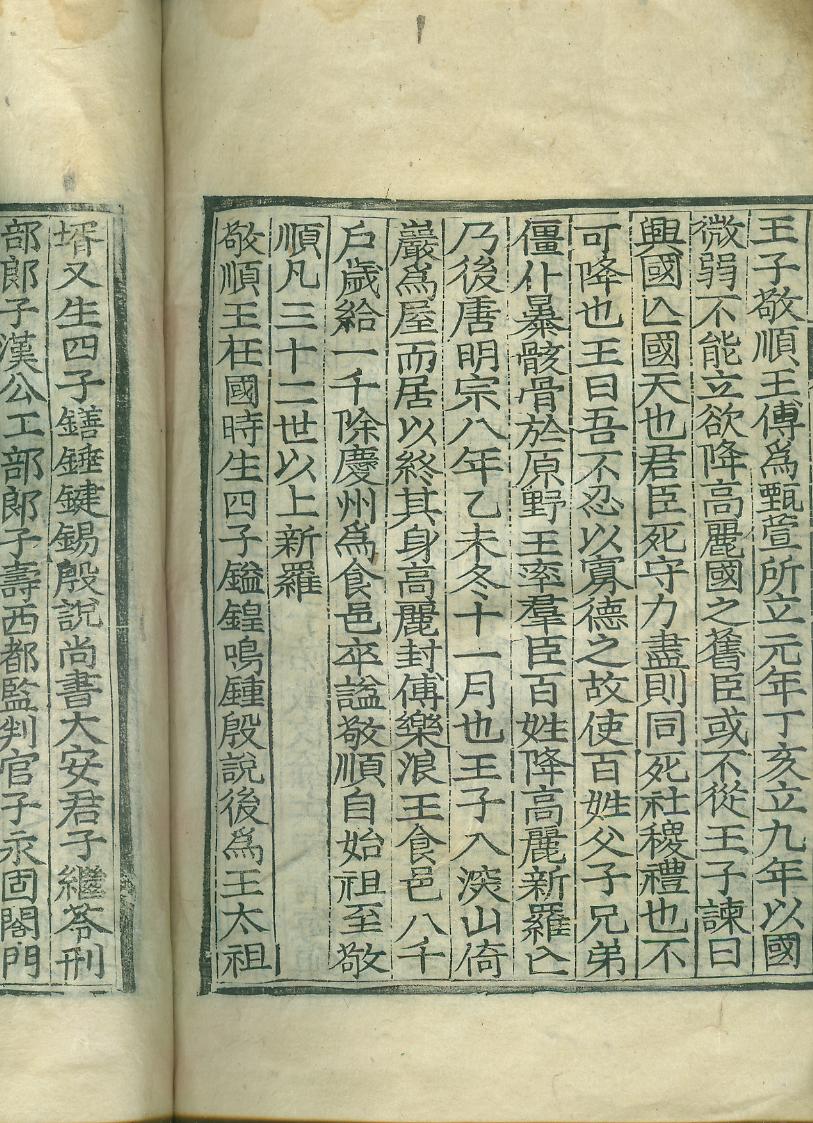 王子敬順王傅為甄萱所立元年丁亥立九年以國
微弱不能立欲降高麗國之舊臣或不從王子諫曰
興國亾國天也君臣死守力盡則同死社稷禮也不
可降也王曰吾不忍以寡德之故使百姓父子兄弟
僵仆暴骸骨於原野王率羣臣百姓降高麗新羅亾
乃後唐明宗八年乙未冬十一月也王子入深山倚
巖為屋而居以終其身高麗封傅樂浪王食邑八千
戶歲給一千除慶州為食邑卒謚敬順自始祖至敬
順凡三十二世以上新羅
敬順王在國時生四子鎰鍠鳴鍾殷說後為王太祖
壻又生四子鐥錘鍵錫殷說尚書大安君子繼苓刑
部郞子漢公工部郞子壽西都監判官子永固閤門